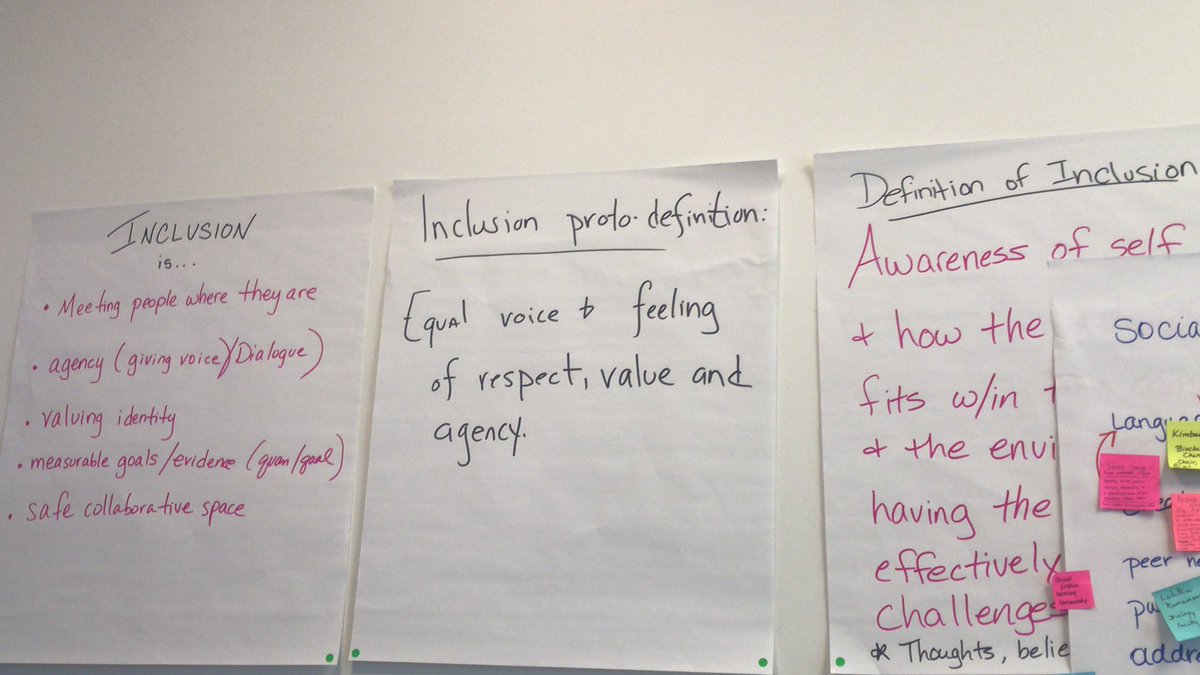 INCLUSION
is...
• Meeting people where they are
• agency (giving voice)/Dialogue)
• valuing identity
• measurable goals/evidence (quan/qual)
• safe collaborative space
Inclusion proto-definition:
Equal voice & feeling
of respect, value and
agency.
Definition of Inclusion
Awareness of self
& how the
fits w/in
& the envi
having the
effectively
challenges
* Thoughts, belie
Socia
Langu
peer ne
pu
addre
Social
Justice
learning
community
Kimbe
Bioche
Chair,
Lalitha
Ramamo
Biology
Faculty